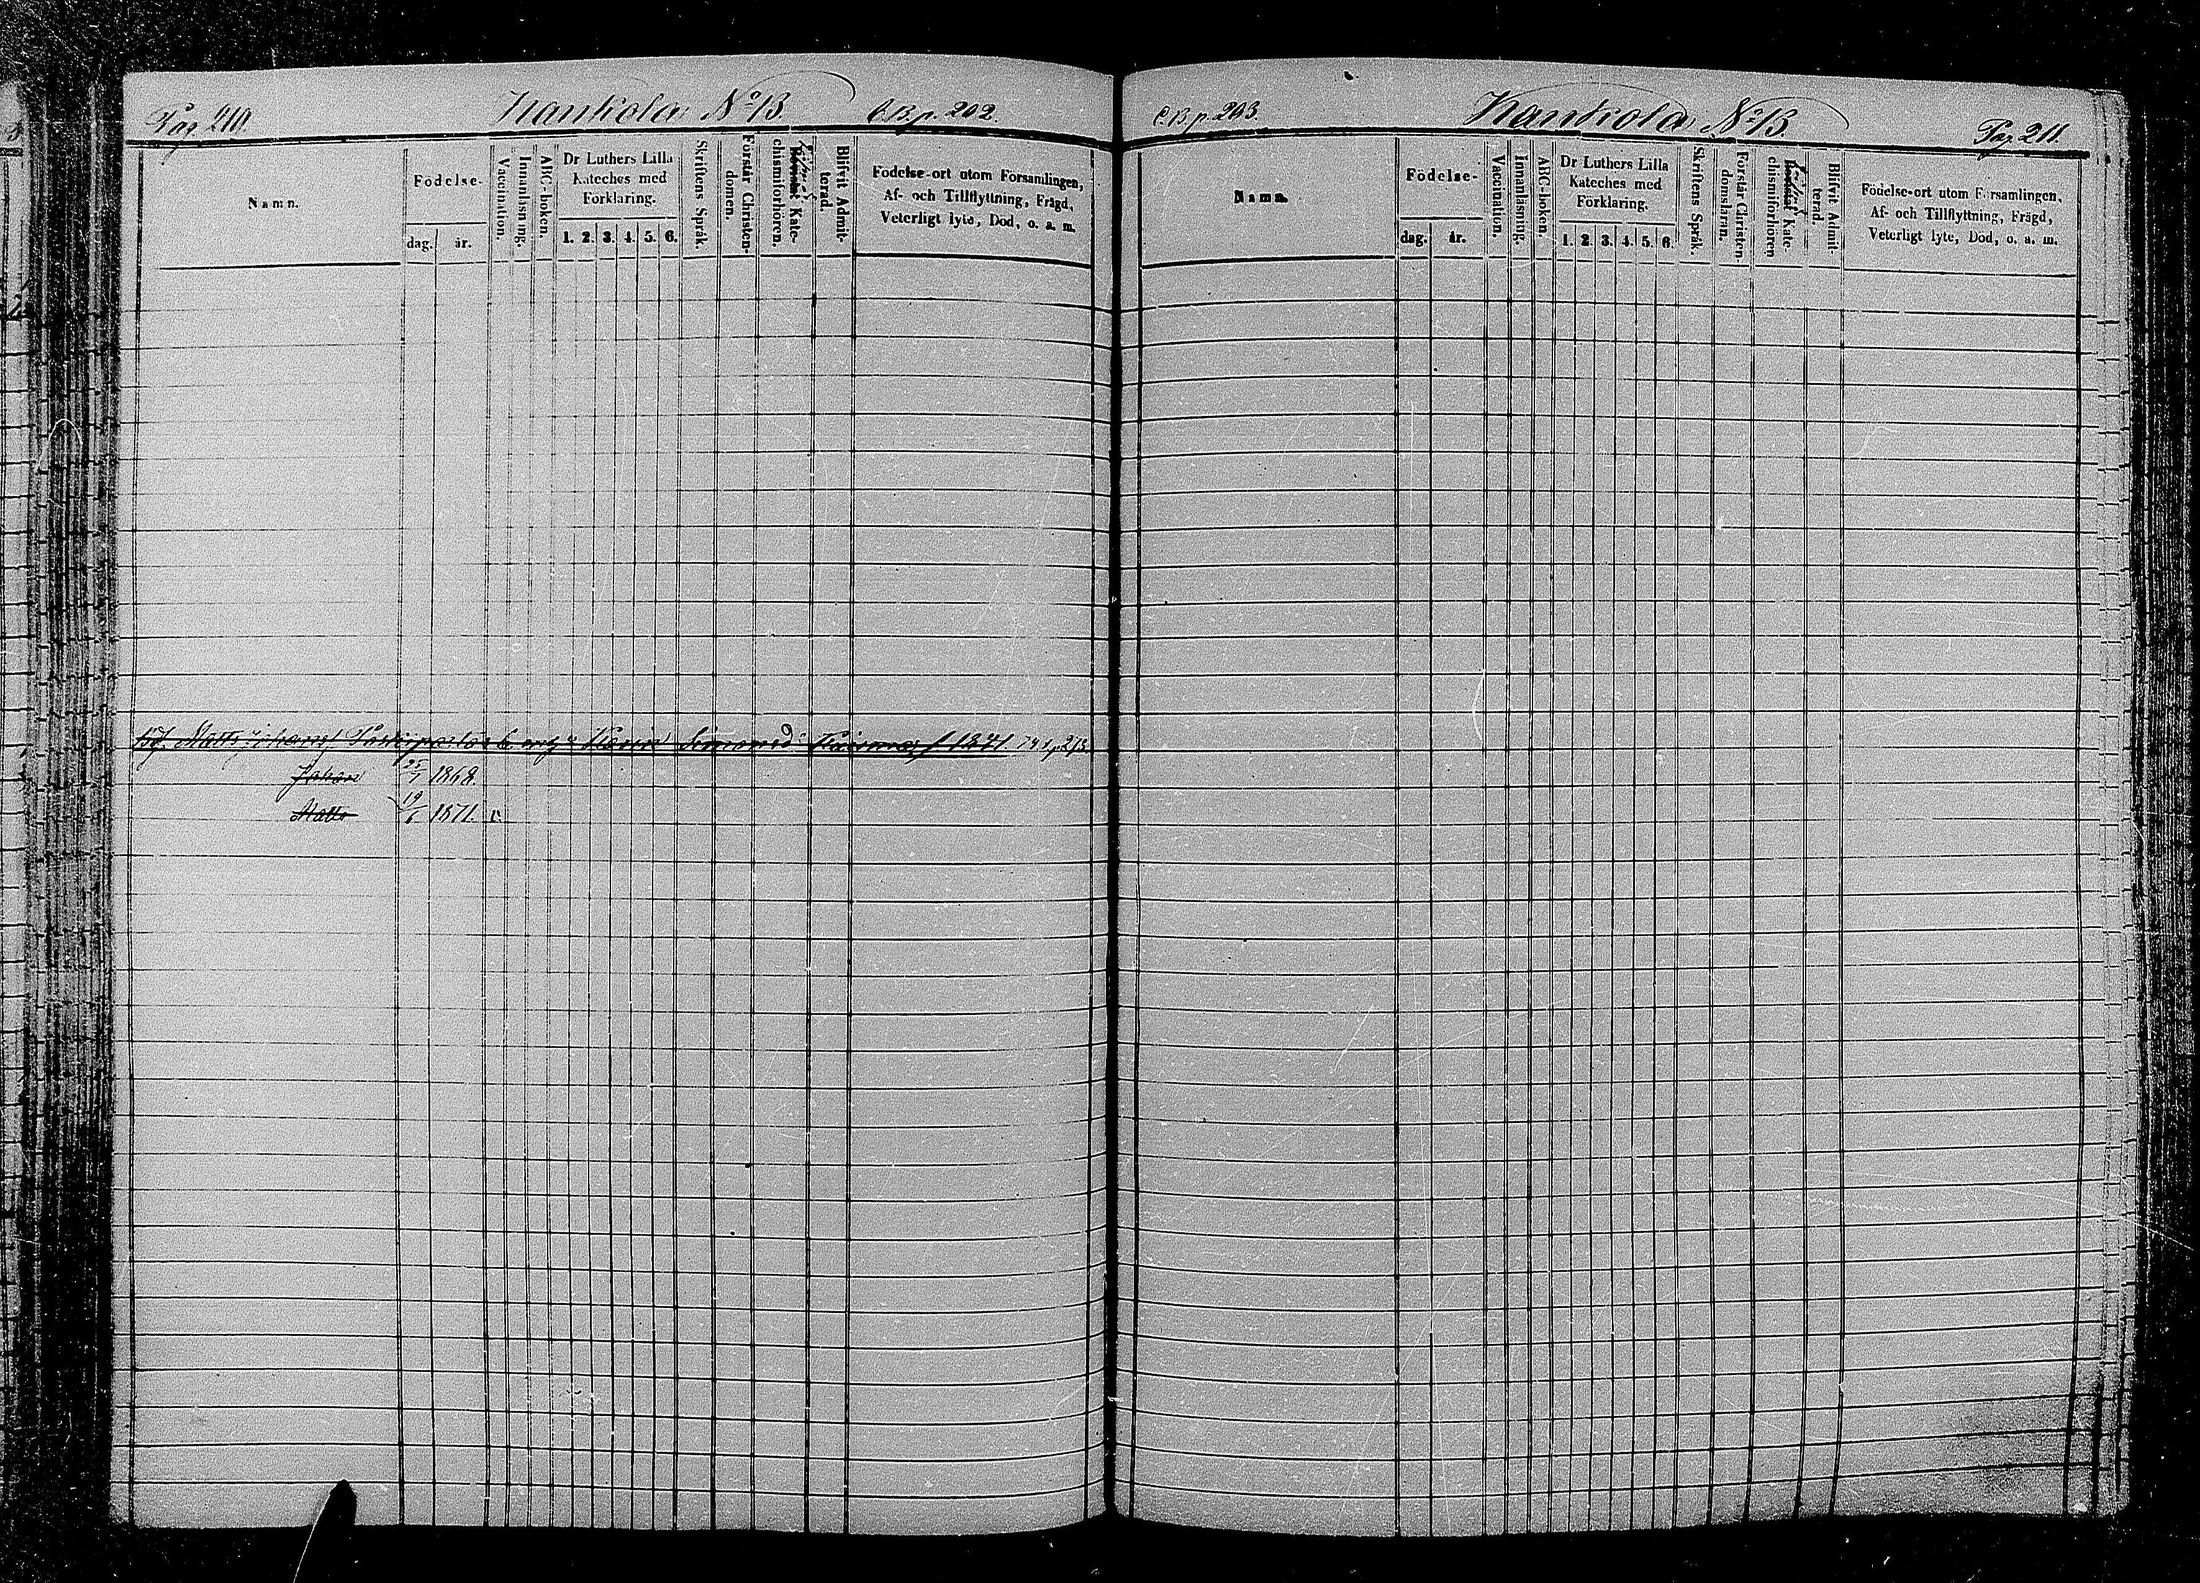 Pag 210. Kankola No 13. C.B.p. 202.
Namn.
Födelse-
dag. år.
Vaccination.
Innanläsning.
ABC-boken.
Dr Luthers Lilla
Kateches med
Förklaring.
1. 2. 3. 4. 5. 6.
Skriftens Språk.
Förstår Christen-
domen.
Kate-
chismiförhören.
Blifvit Admit-
terad.
Födelse-ort utom Församlingen,
Af- och Tillflyttning, Frägd,
Veterligt lyte, Död, o. a. m.
Matts Johans. 1841
Johan 25/1 1868.
Matts 19/6 1871. v
C.B.p. 203. Kankola No 13. Pag. 211.
Namn.
Födelse-
dag. år.
Vaccination.
Innanläsning.
ABC-boken.
Dr Luthers Lilla
Kateches med
Förklaring.
1. 2. 3. 4. 5. 6.
Skriftens Språk.
Förstår Christen-
domsläran.
Kate-
chismiförhören
Blifvit Admit-
terad.
Födelse-ort utom Församlingen,
Af- och Tillflyttning, Frägd,
Veterligt lyte, Död, o. a. m.